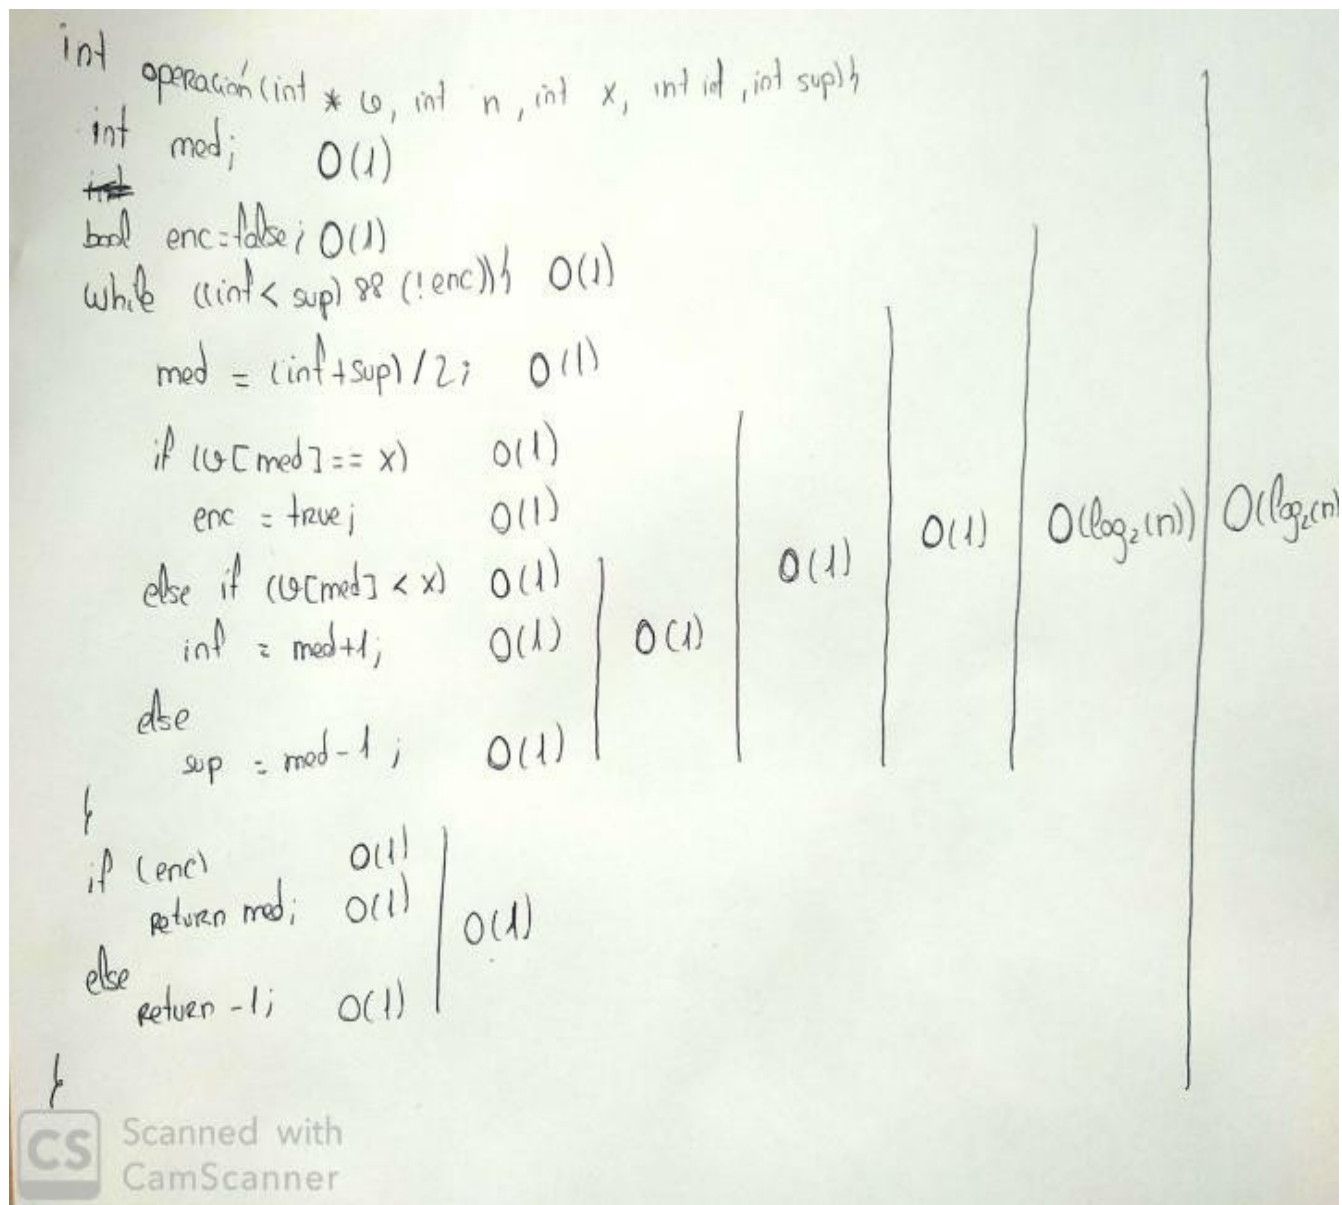 int operación (int * v, int n, int x, int inf, int sup) {
int med; O(1)
bool enc=false; O(1)
while ((inf < sup) && (!enc)) { O(1)
med = (inf+sup)/2; O(1)
if (v[med] == x) O(1)
enc = true; O(1)
else if (v[med] < x) O(1)
inf = med+1; O(1)
else
sup = med-1; O(1)
O(1)
O(1)
O(1)
O(log₂(n))
O(log₂(n)
}
if (enc) O(1)
return med; O(1)
else
return -1; O(1)
O(1)
}
CS Scanned with
CamScanner